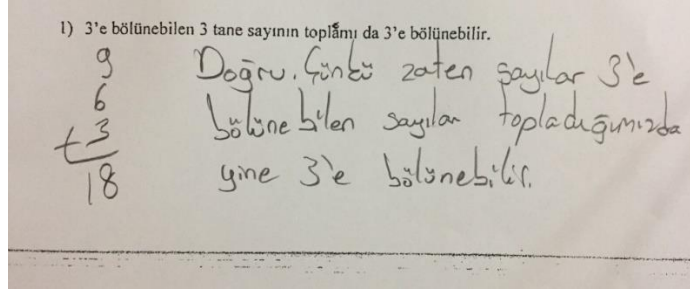 1) 3'e bölünebilen 3 tane sayının toplamı da 3'e bölünebilir.
9
6
+3
18
Doğru. Çünkü zaten sayılar 3'e
bölünebilen sayılar topladığımızda
yine 3'e bölünebilir.